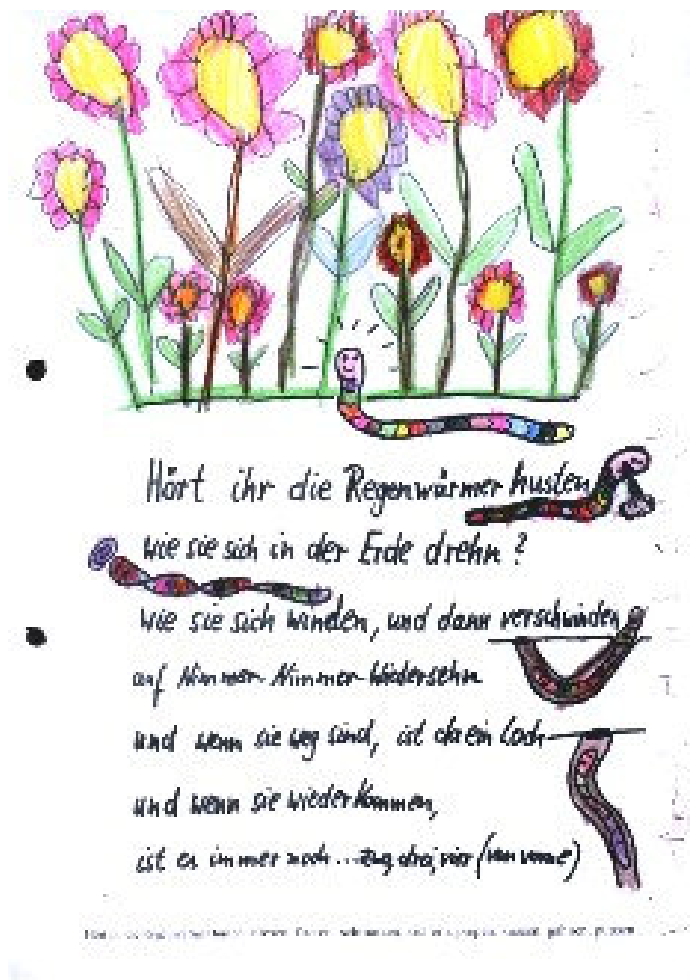 Hört ihr die Regenwürmer husten
wie sie sich in der Erde drehn?
wie sie sich winden, und dann verschwinden
auf Nimmer-Nimmer-Wiedersehn
und wenn sie weg sind, ist da ein Loch
und wenn sie wiederkommen,
ist es immer noch... zwo, drei, vier (von vorne)